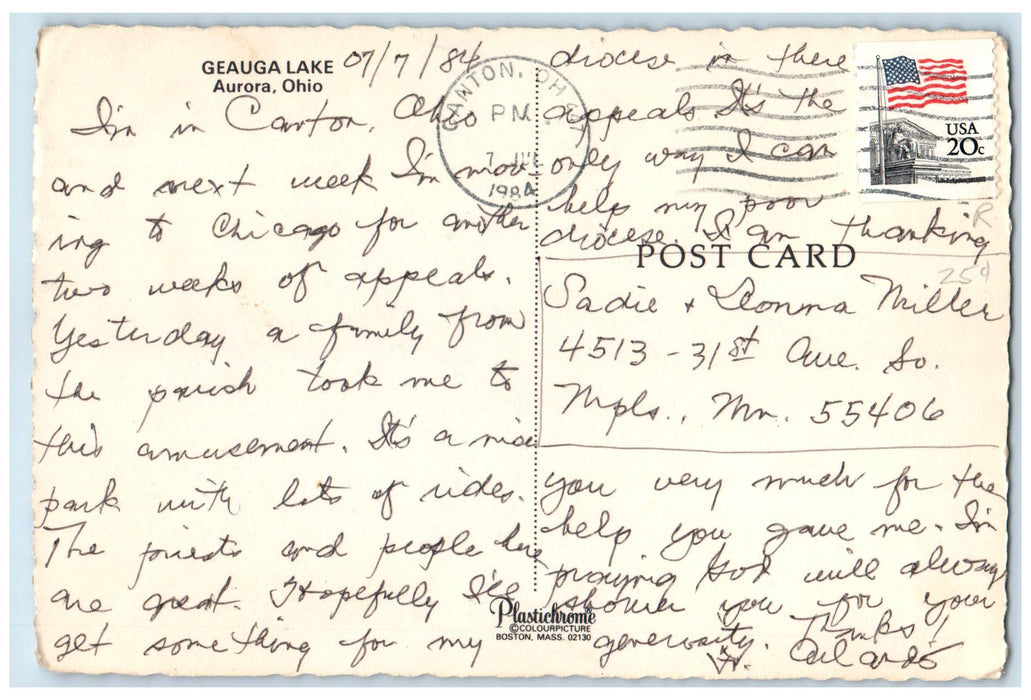 GEAUGA LAKE
Aurora, Ohio
07/7/84
I'm in Canton, Ohio
and next week I'm mov-
ing to Chicago for another
two weeks of appeals.
Yesterday a family from
the parish took me to
this amusement. It's a nice
park with lots of rides.
The priests and people here
are great. Hopefully I'll
get something for my
diocese in there
appeals It's the
only way I can
help my poor
diocese. I am thanking
CANTON, OH
PM
7 JUL
1984
USA
20c
R
25¢
POST CARD
Sadie + Donna Miller
4513 - 31st Ave. So.
Mpls., Mn. 55406
you very much for the
help you gave me. I'm
praying God will always
shower you for your
generosity. Thanks!
Fr. Orlando
Plastichrome
©COLOURPICTURE
BOSTON, MASS. 02130